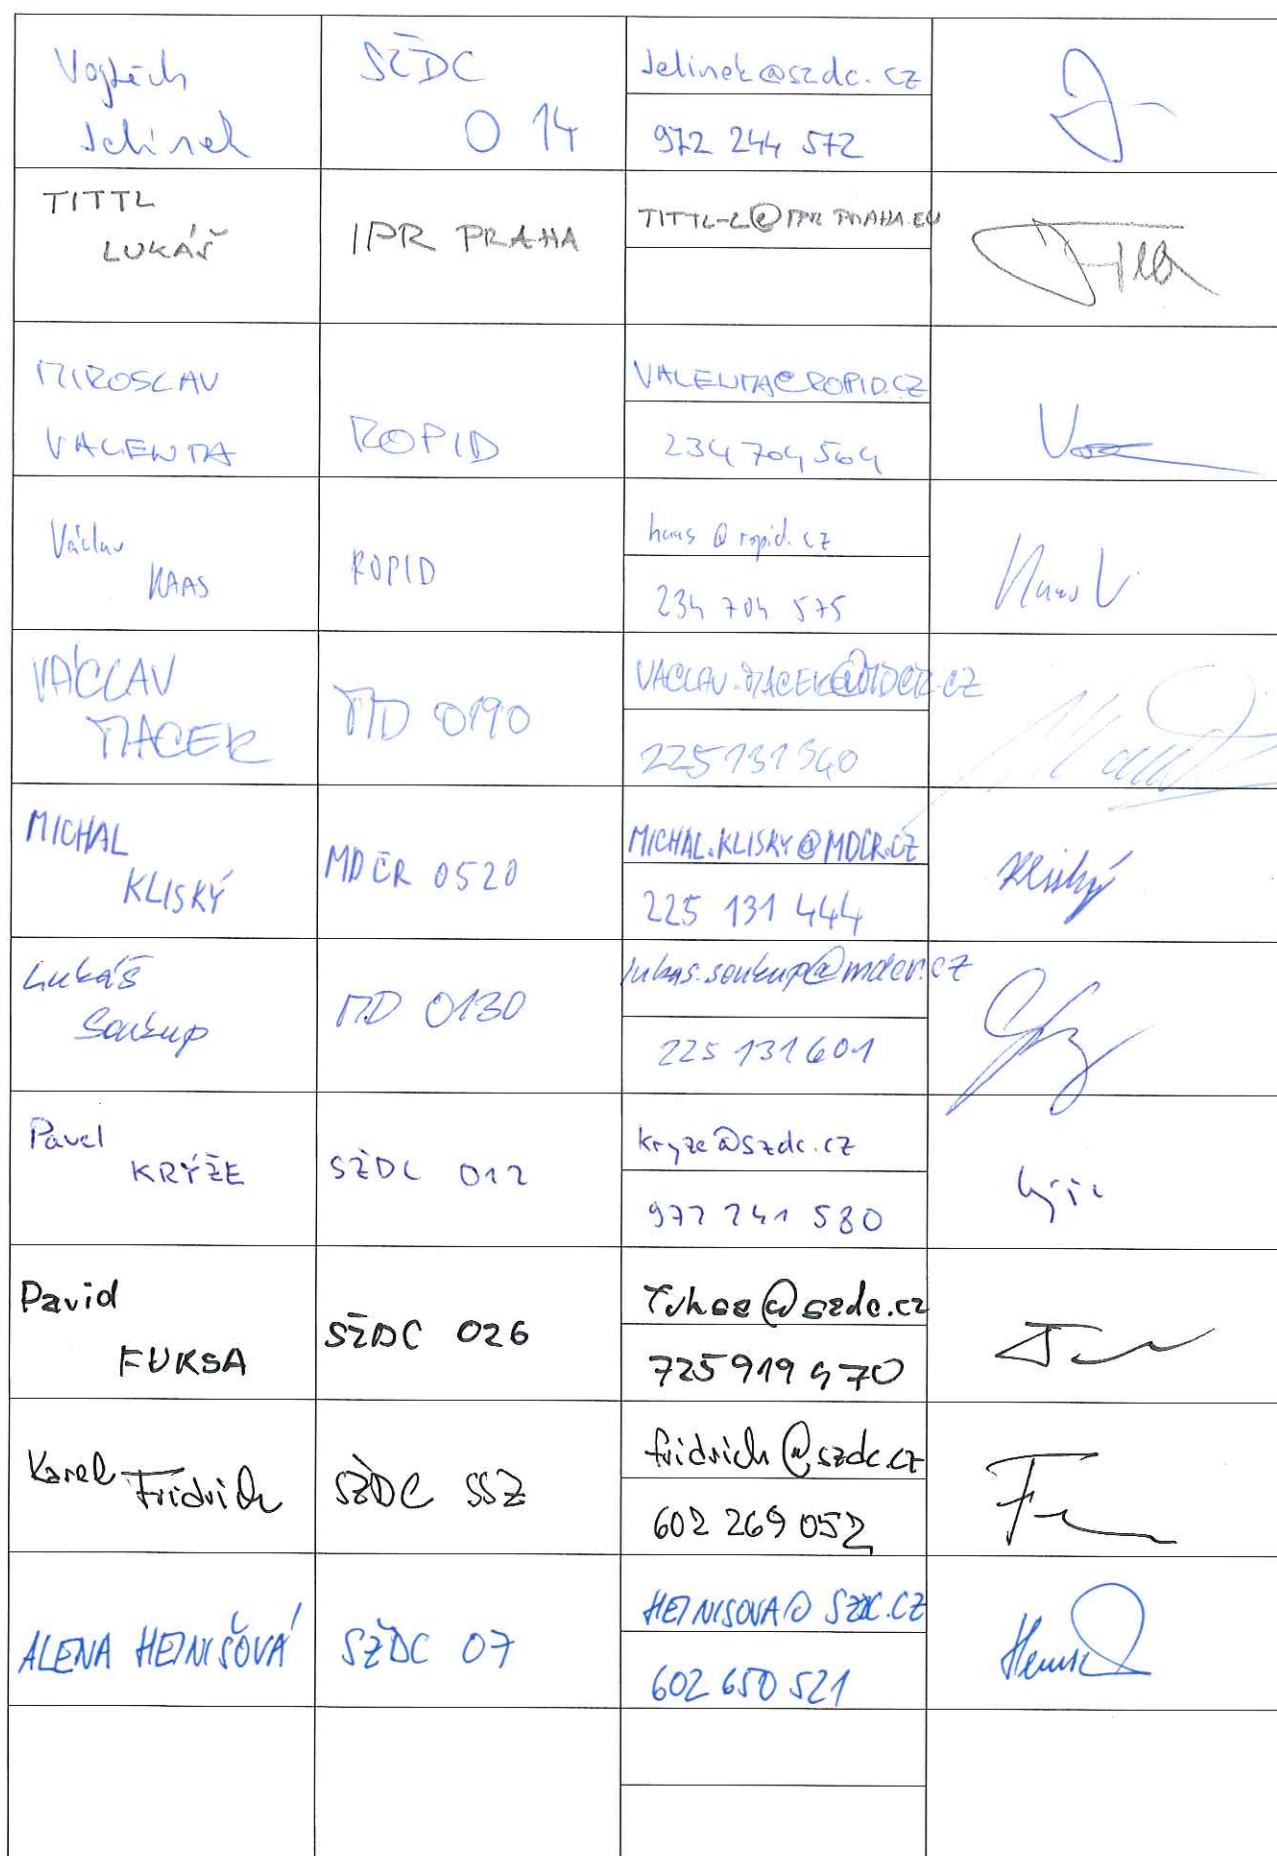 Vojtěch
Jelínek
SŽDC
O 14
Jelinek@szdc.cz
972 244 572
TITTL
LUKÁŠ
IPR PRAHA
TITTL-L@IPR PRAHA.EU
MIROSLAV
VALENTA
ROPID
VALENTA@ROPID.CZ
234 704 564
Václav
HAAS
ROPID
haas@ropid.cz
234 704 575
Haas V
VÁCLAV
MACEK
MD 0190
VACLAV.MACEK@MDCR.CZ
225 131 340
MICHAL
KLISKÝ
MDČR 0520
MICHAL.KLISKY@MDCR.CZ
225 131 444
Kliský
Lukáš
Soukup
MD 0130
lukas.soukup@mdcr.cz
225 131 601
Pavel
KRÝŽE
SŽDC O12
kryze@szdc.cz
972 241 580
David
FUKSA
SŽDC O26
Fuksa@szdc.cz
725 919 970
Karel Fridrich
SŽDC SSZ
fridrich@szdc.cz
602 269 052
ALENA HEINIŠOVÁ
SŽDC O7
HEINISOVA@SZDC.CZ
602 650 521